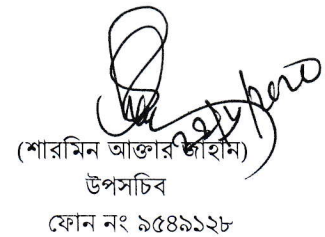 (শারমিন আক্তার জাহান)
উপসচিব
ফোন নং ৯৫৪৯১২৮